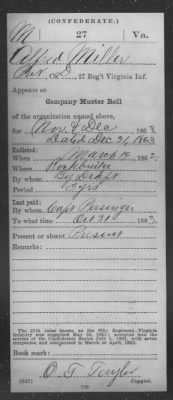 (CONFEDERATE.)
M 27 Va.
Alfred Miller
Pvt., Co. , 27 Reg't Virginia Inf.
Appears on
Company Muster Roll
of the organization named above,
for Nov & Dec, 1863.
Dated Dec 31, 1863
Enlisted:
When March 14, 186
Where Rockbridge
By whom By Draft
Period 3 yrs
Last paid:
By whom Capt
To what time Oct 31, 1863.
Present or absent Present
Remarks:
The 27th (also known as the 6th) Regiment, Virginia
Infantry was organized May 30, 1861; accepted into the
service of the Confederate States July 1, 1861, with seven
companies, and reorganized in March or April, 1862.
Book mark:
(642) Copyist.